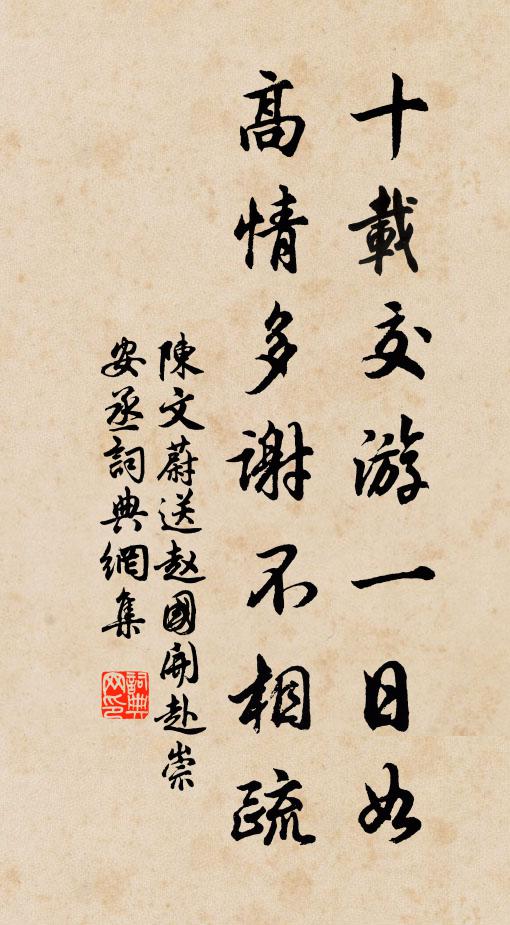 十載交游一日如
高情多謝不相疏
陳文蔚送赵國開赴崇
安丞詞典網集
詞典網印